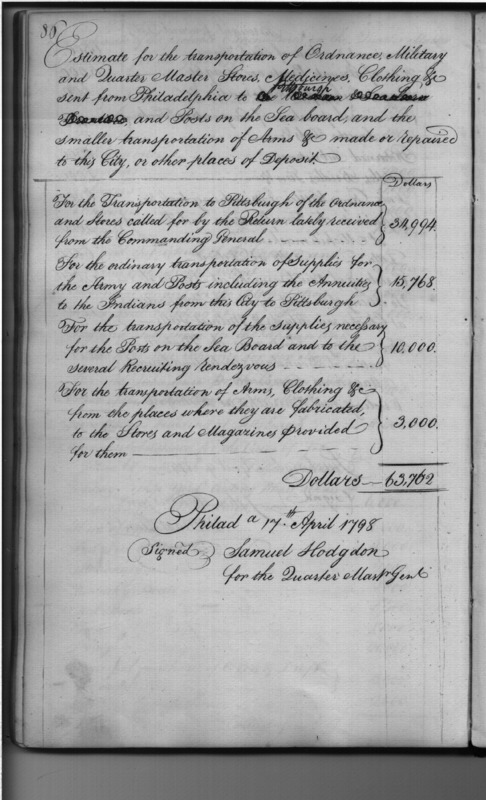 86
Estimate for the transportation of Ordnance, Military
and Quarter Master Stores, Medicines, Clothing &c
Pittsburgh
sent from Philadelphia to
and Posts on the Sea board, and the
smaller transportation of Arms &c made or repaired
to this City, or other places of Deposit.
Dollars
For the Transportation to Pittsburgh of the Ordnance
and Stores called for by the Return lately received 34,994.
from the Commanding General
For the ordinary transportation of Supplies for
the Army and Posts including the Annuities 15,768.
to the Indians from this City to Pittsburgh
For the transportation of the supplies necessary
for the Posts on the Sea Board and to the 10,000.
several Recruiting Rendezvous
For the transportation of Arms, Clothing &c
from the places where they are fabricated, 3,000.
to the Stores and Magazines provided
for them
Dollars 63,762
Philad a 17th April 1798
(Signed) Samuel Hodgdon
for the Quarter Mastr Genl